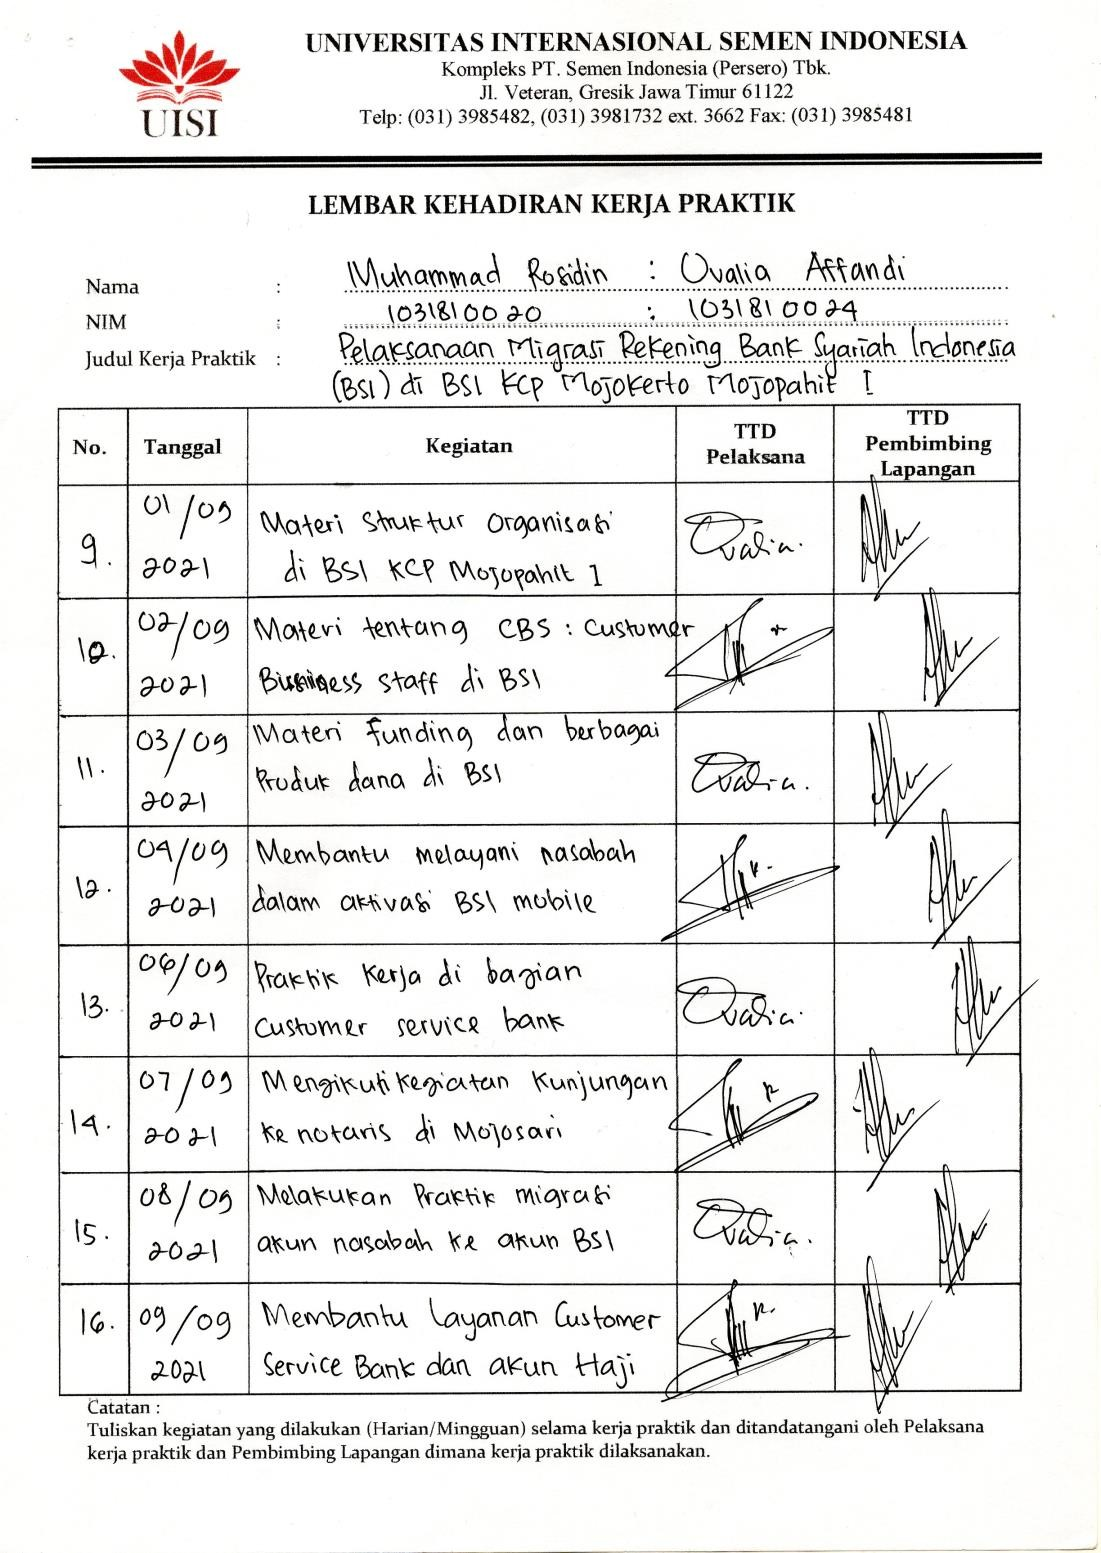 UISI
UNIVERSITAS INTERNASIONAL SEMEN INDONESIA
Kompleks PT. Semen Indonesia (Persero) Tbk.
Jl. Veteran, Gresik Jawa Timur 61122
Telp: (031) 3985482, (031) 3981732 ext. 3662 Fax: (031) 3985481
LEMBAR KEHADIRAN KERJA PRAKTIK
Nama : Muhammad Rosidin : Ovalia Affandi
NIM : 1031810020 : 1031810024
Judul Kerja Praktik : Pelaksanaan Migrasi Rekening Bank Syariah Indonesia
(BSI) di BSI KCP Mojokerto Mojopahit I
No. Tanggal Kegiatan TTD Pelaksana TTD Pembimbing Lapangan
9. 01/09 Materi Struktur Organisasi Ovalia.
2021 di BSI KCP Mojopahit I
10. 02/09 Materi tentang CBS : Custumer
2021 Business staff di BSI
11. 03/09 Materi funding dan berbagai
2021 Produk dana di BSI Ovalia.
12. 04/09 Membantu melayani nasabah
2021 dalam aktivasi BSI mobile
13. 06/09 Praktik Kerja di bagian Ovalia.
2021 Customer service bank
14. 07/09 Mengikuti kegiatan Kunjungan
2021 ke notaris di Mojosari
15. 08/09 Melakukan Praktik migrasi Ovalia.
2021 akun nasabah ke akun BSI
16. 09/09 Membantu Layanan Customer
2021 Service Bank dan akun Haji
Catatan :
Tuliskan kegiatan yang dilakukan (Harian/Mingguan) selama kerja praktik dan ditandatangani oleh Pelaksana
kerja praktik dan Pembimbing Lapangan dimana kerja praktik dilaksanakan.